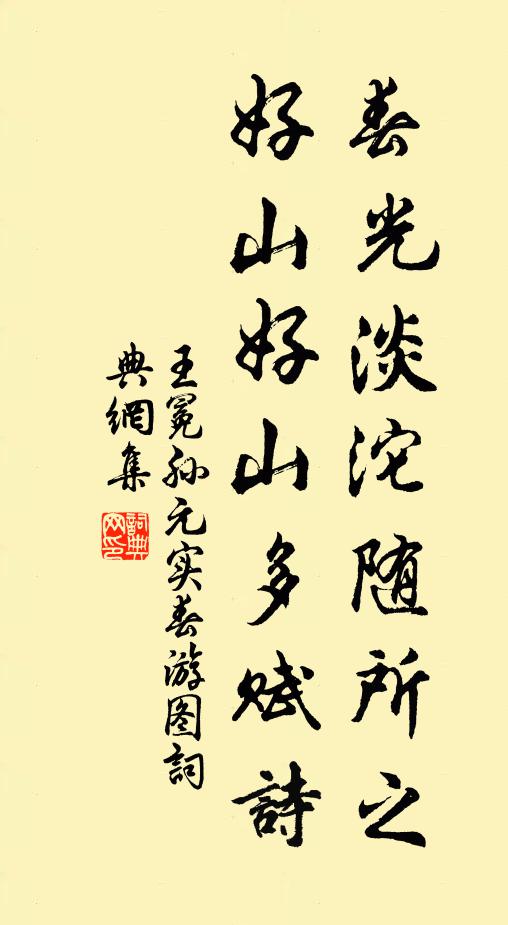 春光淡沱随所之
好山好山多赋詩
王冕孙元实春游图詞
典網集
詞典网印